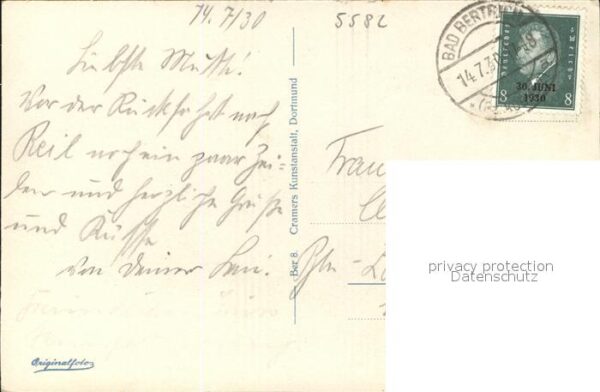 14.7/30
5582
Liebste Mutti!
Vor der Rückfahrt nach
Reil noch ein paar Zei-
len und herzliche Grüße
und Küsse
von Deiner
Originalfoto
Ber 8. Cramers Kunstanstalt, Dortmund
BAD BERTRICH
14.7.30
Deutsches Reich
30. JUNI
1930
8 8
Frau
Bln-
privacy protection
Datenschutz